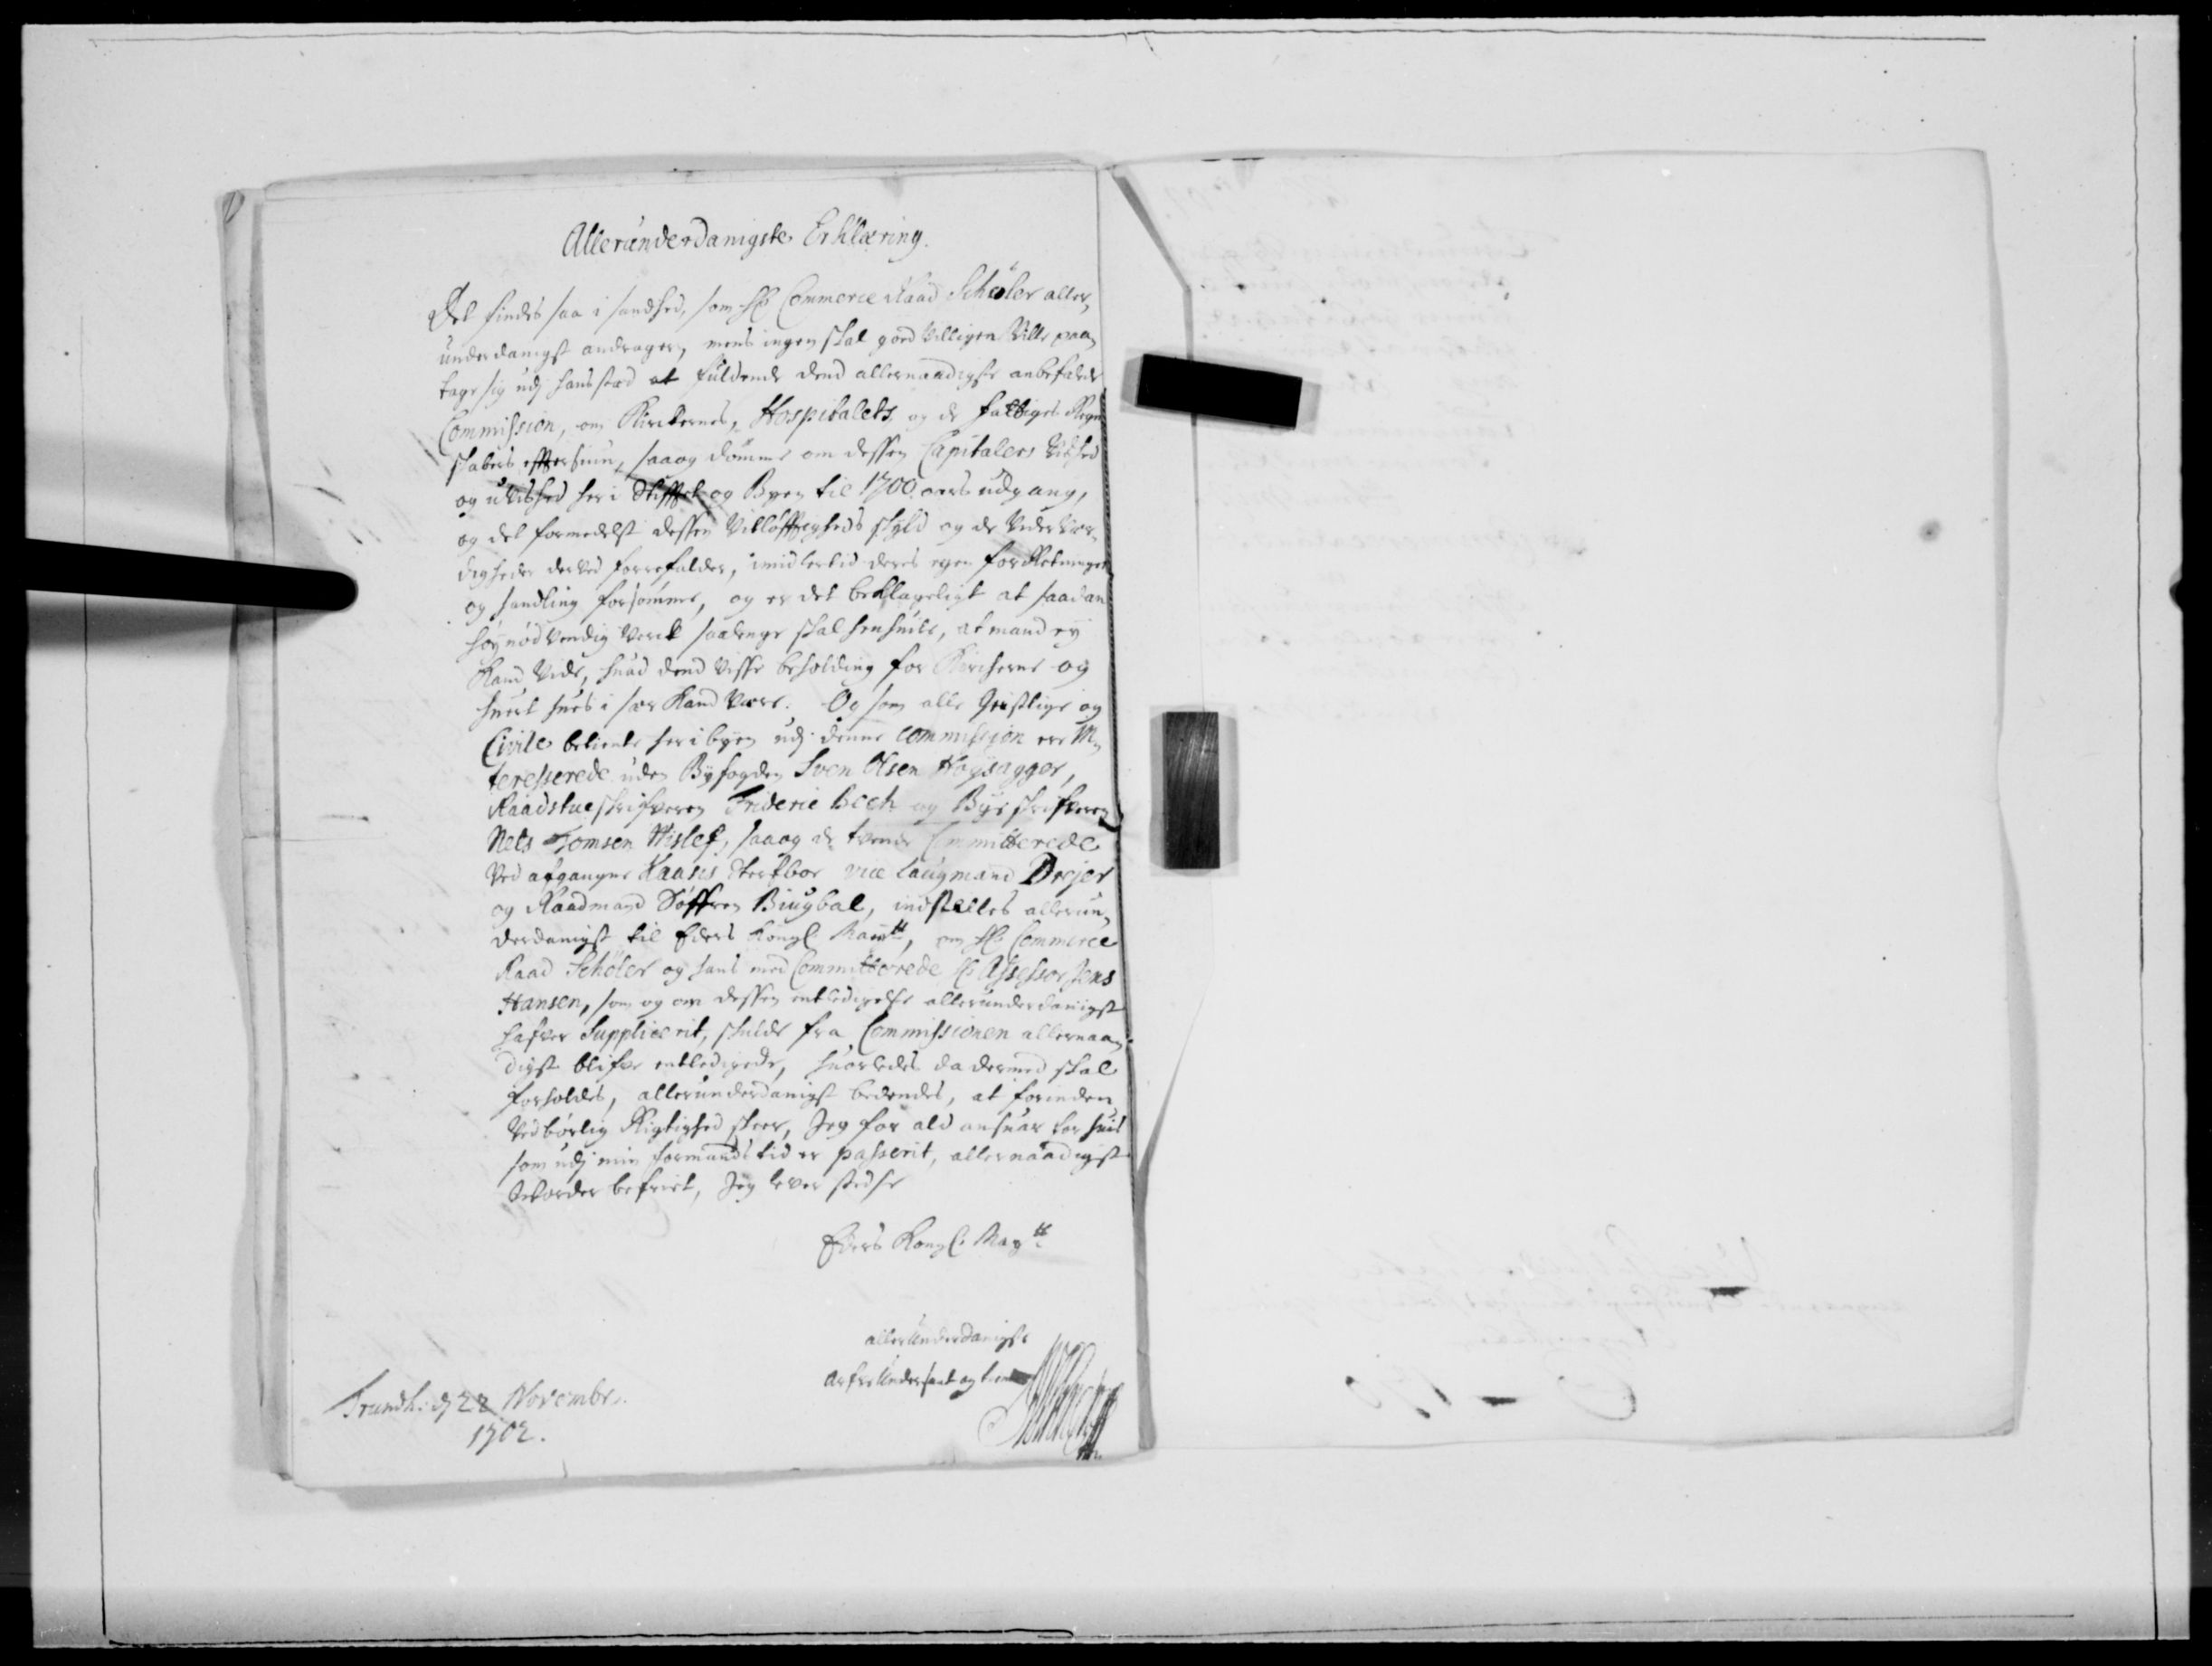 Allerunderdanigste Erklæring.
Det findes saa i sandhed, som Hr Commerce Raad Schøler aller,
underdanigst andrager, mens ingen skal goed villigen ville paa,
tage sig udj hans sted at fuldende dend allernaadigste anbefalede
Commission, om Kirckernes, Hospitalets og de fattiges Regn
skabers eftersiun, saa og dømme om dessen Capitalers Vished
og uvished her i Stifftet og Byen til 1700 aars udgang,
og det formedelst dessen Vitløfftigheds skyld og de Vederver,
digheder derved forrefalder, imidlertid deres egen forRetninger
og handling forsømmes, og er det beklageligt at saadan
høynødvendig Verck saalenge skal henhvile, at mand ey
Kand Vide, huad dend visse beholding for Kirckerne og
huert huus i sær Kand være. Og som alle Geistlige og
Civile betiente her i byen udj denne Commission ere In,
teresserede uden Byfogden Sven Olsen Høysagger,
Raadstueskrifveren Frideric Bech og Byeskrifveren
Nels Tomsen Wislef, saa og de tvende Committerede
Ved afgangne Kaases Sterfboe vice Laugmand Drejer
og Raadmand Søffren Biugbal, indstilles allerun,
derdanigst til Eders Kongl. Mayst, om Hr Commerce
Raad Schøler og hans med Committerede Hr Assessor Jens
Hansen, som og om dessen entledigelse allerunderdanigst
hafver Supplicerit, skulde fra Commissionen allernaa,
digst blifve entledigede, huorledes da dermed skal
forholdes, allerunderdanigst bedendes, at forinden
Vedbørlig Rigtighed skeer, Jeg for ald ansuar for huis
som udj min formands tid er passerit, allernaadigst
Worder befriet, Jeg lever stedse
Eders Kongl. Mayst
allerunderdanigste
arfve Undersaat og tiener
Trundh: dj 22 Novembr.
1702.